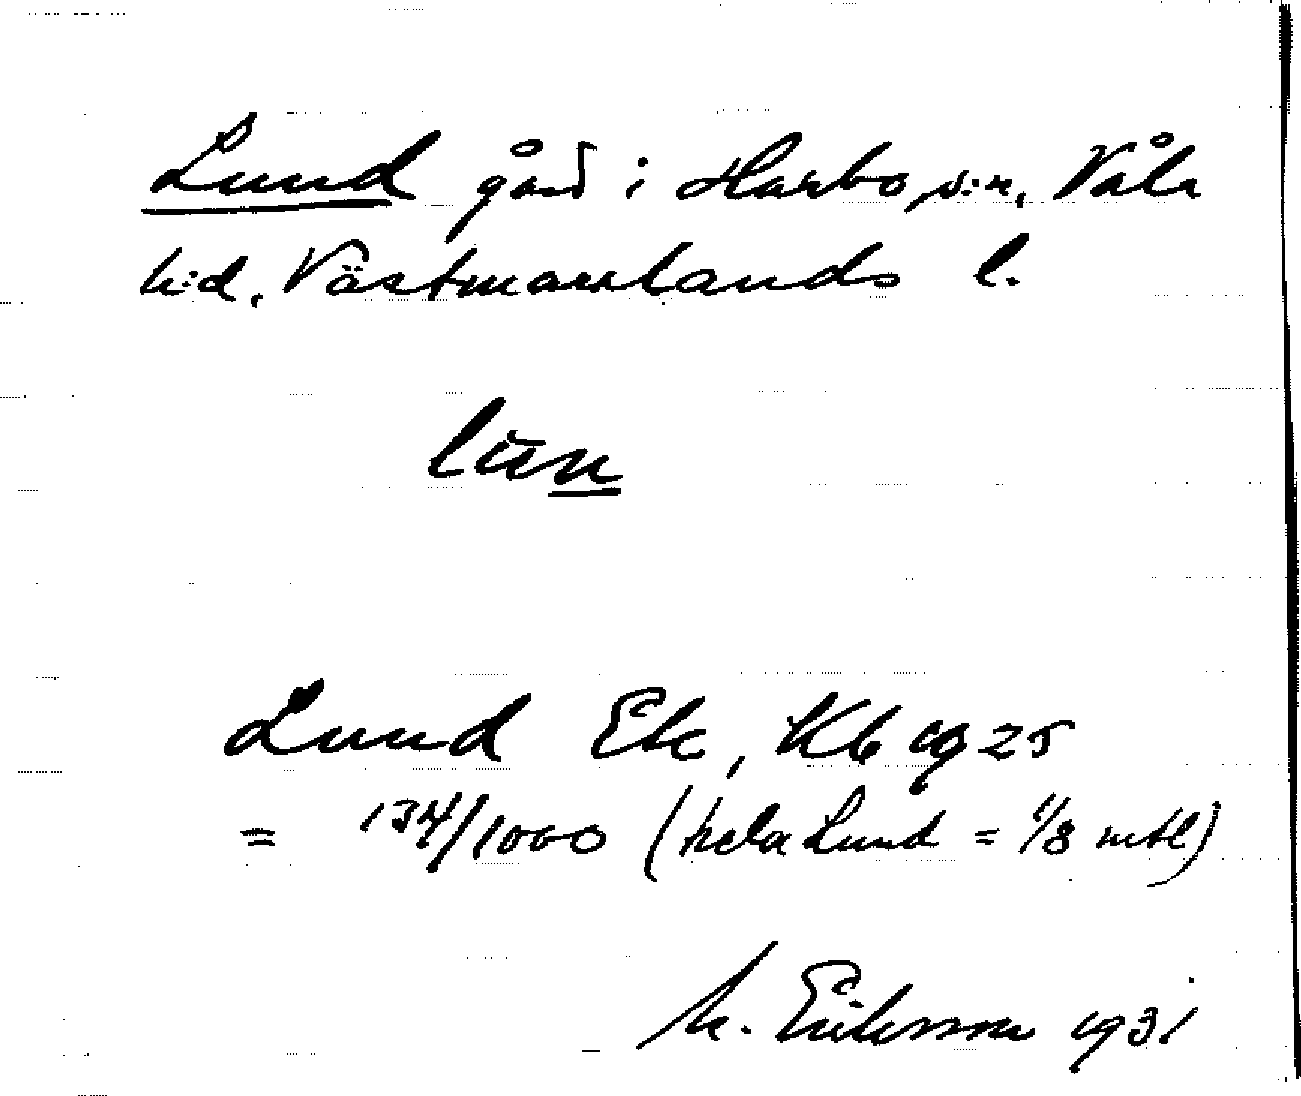 Lund gård i Harbo s:n, Våla
h:d, Västmanlands l.
Lund Ek, Kb 1925
= 134/1000 (hela Lund = 1/8 mtl)
M. Eriksson 1931